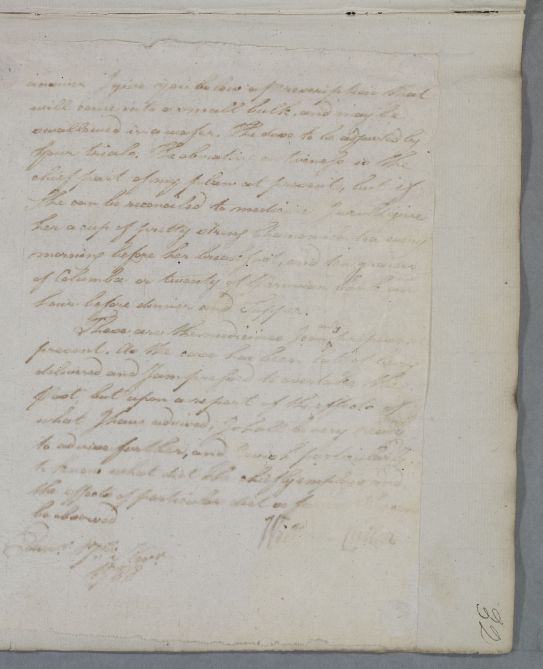 answer I give you below a prescription that
will come into a small bulk, and may be
swallowed in a wafer. The dose to be adjusted by
some trials. The abvative is the
chief part of my plan at present, but if
She can be reconciled to medicine I would give
her a cup of pretty strong Chamomile tea every
morning before her breakfast, and ten grains
of Columba or twenty of Peruvian bark an
hour before dinner and Supper.
These are the medicines I can at
present. As the case has been
delivered and I am to the
post, but upon a report of the effects of
what I have advised, I shall be very ready
to advise further, and I wish particularly
to know what diet She chiefly employs and
the effects of particular diet as far as
be observed
Willm Cullen
Edinr. 
32